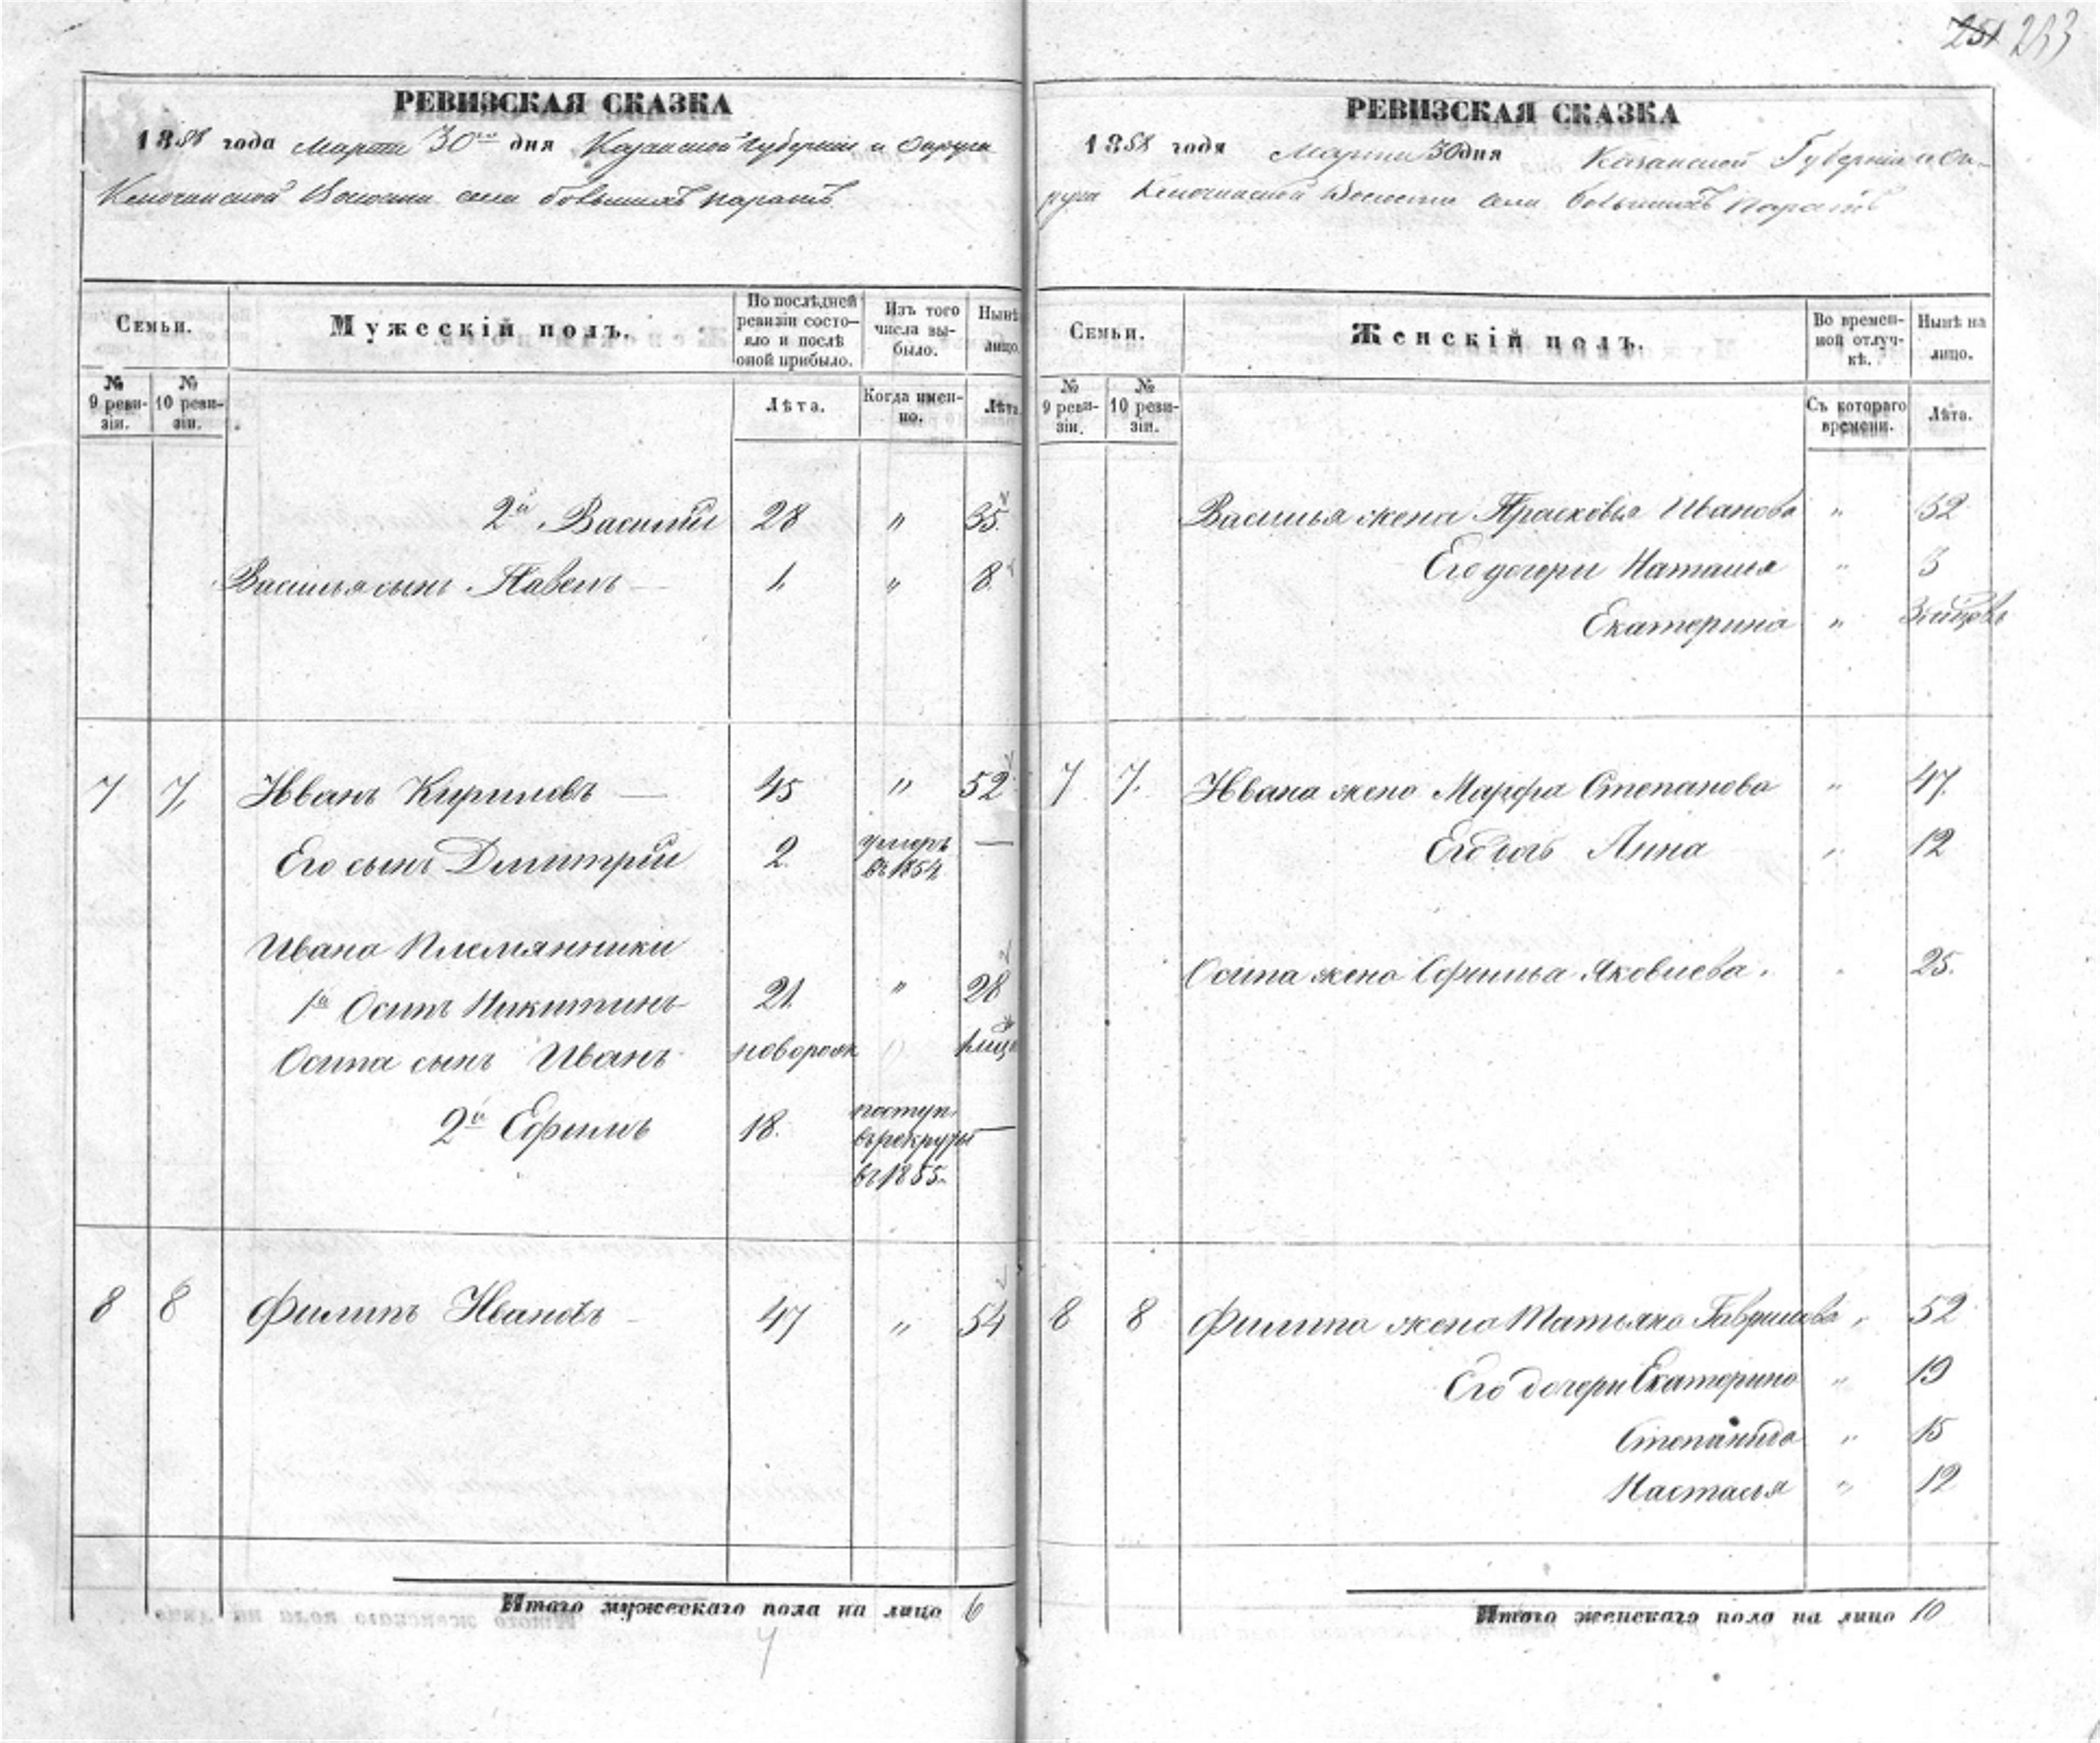 251 233
РЕВИЗСКАЯ СКАЗКА
1858 года Марта 30го дня Казанской Губерніи и Округа
Ключинской Волости села большихъ паратъ
Семьи.
Мужескій полъ.
По послѣдней ревизіи состо-
яло и послѣ оной прибыло.
Изъ того числа вы-
было.
Нынѣ лицо.
№ 9 реви-
зіи.
№ 10 реви-
зіи.
Лѣта.
Когда имен-
но.
Лѣта
2й Василій 28 " 35
Василья сынъ Павелъ — 1 " 8
7 7 Иванъ Кириловъ — 45 " 52
Его сынъ Дмитрій 2 умеръ въ 1854 —
Ивана Племянники
1й Осипъ Никитинъ 21 " 28
Осипа сынъ Иванъ новорож "
2й Ефимъ 18. поступ. въ рекруты въ 1855. —
8 8 Филипъ Ивановъ 47 " 54
Итого мужескаго пола на лицо 6
РЕВИЗСКАЯ СКАЗКА
1858 года Марта 30 дня Казанской Губерніи и Ок-
руга Ключинской Волости села большихъ Паратъ
Семьи.
Женскій полъ.
Во времен-
ной отлуч-
кѣ.
Нынѣ на лицо.
№ 9 реви-
зіи.
№ 10 реви-
зіи.
Съ котораго времени.
Лѣта.
Василья жена Прасковья Иванова " 32
Его дочери Наталья " 3
Екатерина "
7 7. Ивана жена Марфа Степанова " 47.
Его дочь Анна " 12
Осипа жена Офимья Яковлева. " 25.
8 8 Филипа жена Татьяна Гаврилова " 52
Его дочери Екатерина " 19
Степанида " 15
Настасья " 12
Итого женскаго пола на лицо 10